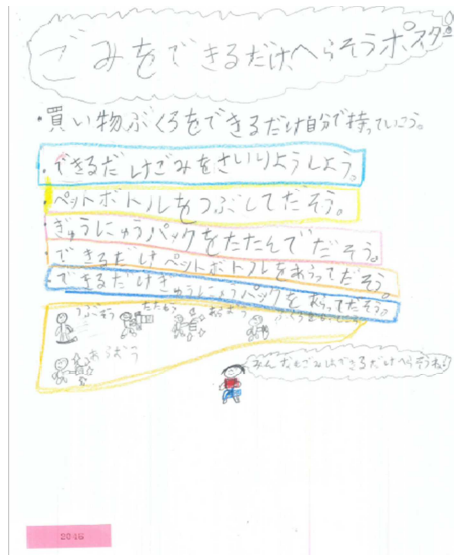 ごみをできるだけへらそうポスター
・買い物ぶくろをできるだけ自分で持っていこう。
・できるだけごみをさいりようしよう。
・ペットボトルをつぶしてだそう。
・ぎゅうにゅうパックをたたんでだそう。
・できるだけペットボトルをあらってだそう。
・できるだけぎゅうにゅうパックをあらってだそう。
つぶそう
あらおう
みんなもごみはできるだけへらそうね!
2046